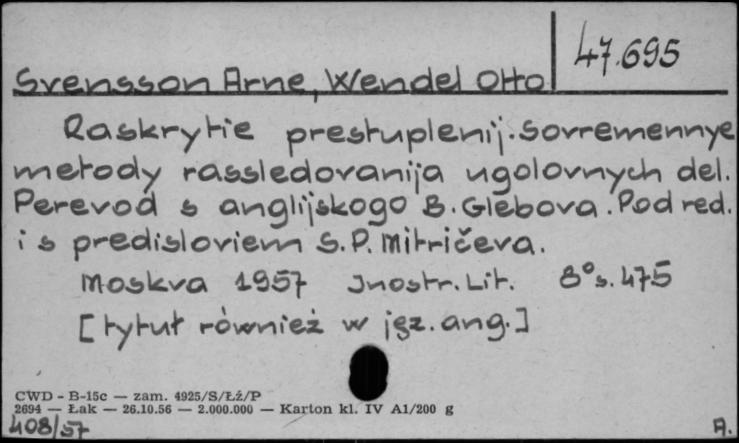 47.695
Svensson Arne, Wendel Otto
Raskrytie prestuplenij. Sovremennye
metody rassledovanija ugolovnych del.
Perevod s anglijskogo B. Glebova. Pod red.
i s predisloviem S.P. Mitričeva.
Moskva 1957 Inostr. Lit. 8° s. 475
[tytuł również w jęz. ang.]
CWD - B-15c — zam. 4925/S/Łź/P
2694 — Łak — 26.10.56 — 2.000.000 — Karton kl. IV A1/200 g
408/57
A.